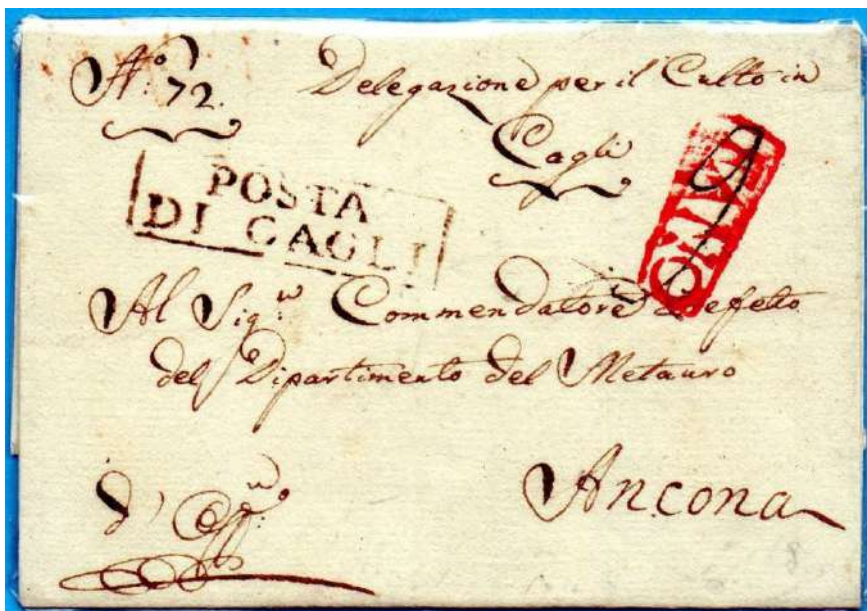 N.º 72.
Delegazione per il Culto in
Cagli
POSTA
DI CAGLI
Al Sig.re Commendatore Prefetto
del Dipartimento del Metauro
Ancona
d'